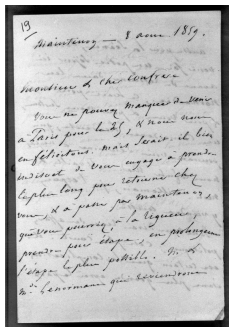 19
Maintenon — 3 aout 1859.
Monsieur & cher Confrere
Vous ne pouvez manquer de venir
a Paris pour le 25, & nous nous
en félicitons. mais serait-il bien
indiscret de vous engager à prendre
le plus long pour retourner chez
vous, & à passer par Maintenon,
que vous pourriez, à la rigueur
prendre pour étape, en prolongeant
l'étape le plus possible. M. &
Mde Lenormant qui reviendront